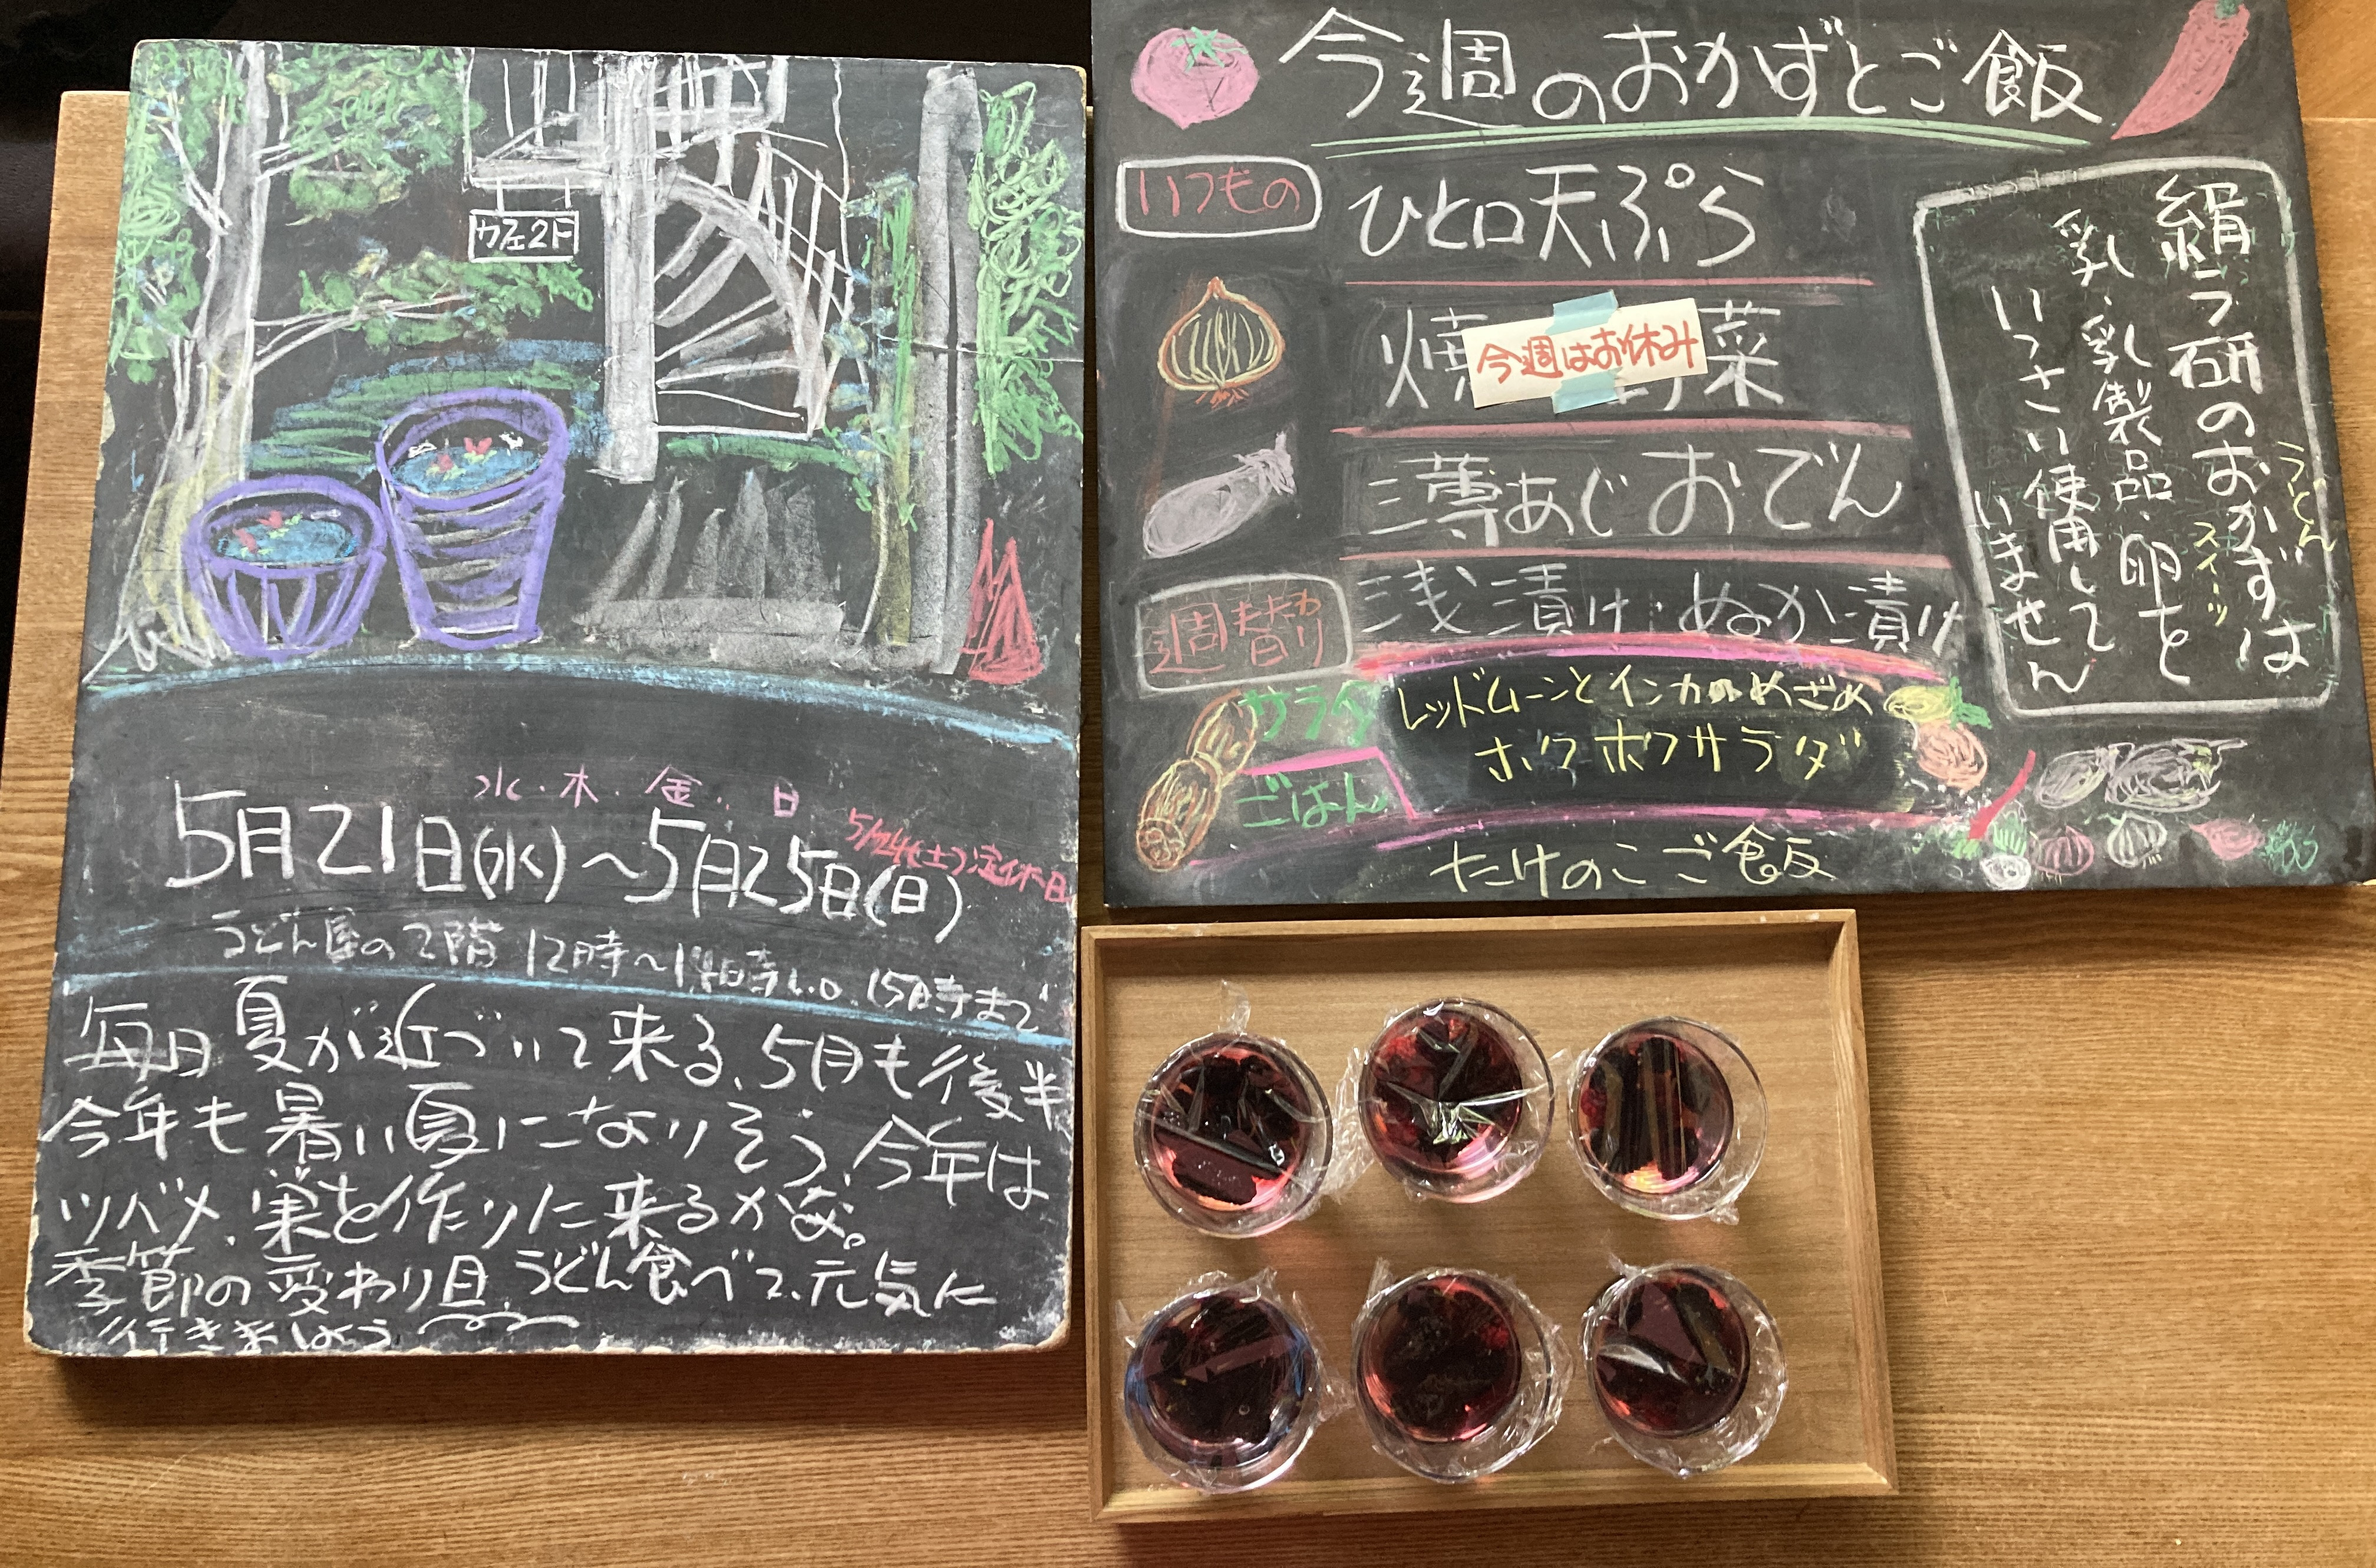 カフェ2F
水・木・金・日
5月21日(水)〜5月25日(日)
5/24(土)定休日
うどん屋の2階 12時〜14時L.O. 15時まで
毎日夏が近づいて来る、5月も後半
今年も暑い夏になりそう、今年は
ツバメ、巣を作りに来るかな。
季節の変わり目、うどん食べて、元気に
行きましょう
今週のおかずとご飯
いつもの
ひと口天ぷら
焼 菜
今週はお休み
薄あじおでん
浅漬け・ぬか漬け
週替わり
サラダ
レッドムーンとインカのめざめ
ホクホクサラダ
ごはん
たけのこご飯
絹ラ研のおかずは
うどん
スイーツ
乳・乳製品・卵を
いっさい使用して
いません